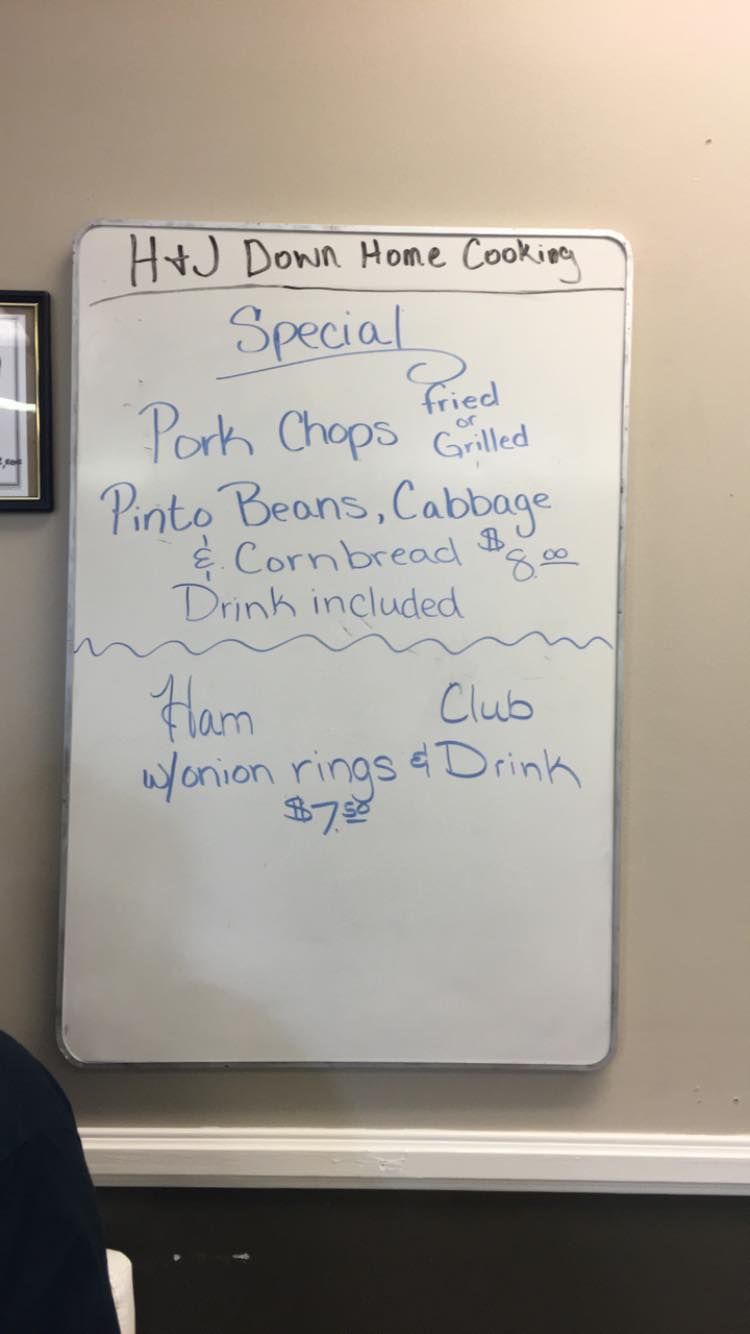 H+J Down Home Cooking
Special
Pork Chops fried
or
Grilled
Pinto Beans, Cabbage
& Cornbread $8.00
Drink included
Ham Club
w/onion rings & Drink
$7.50